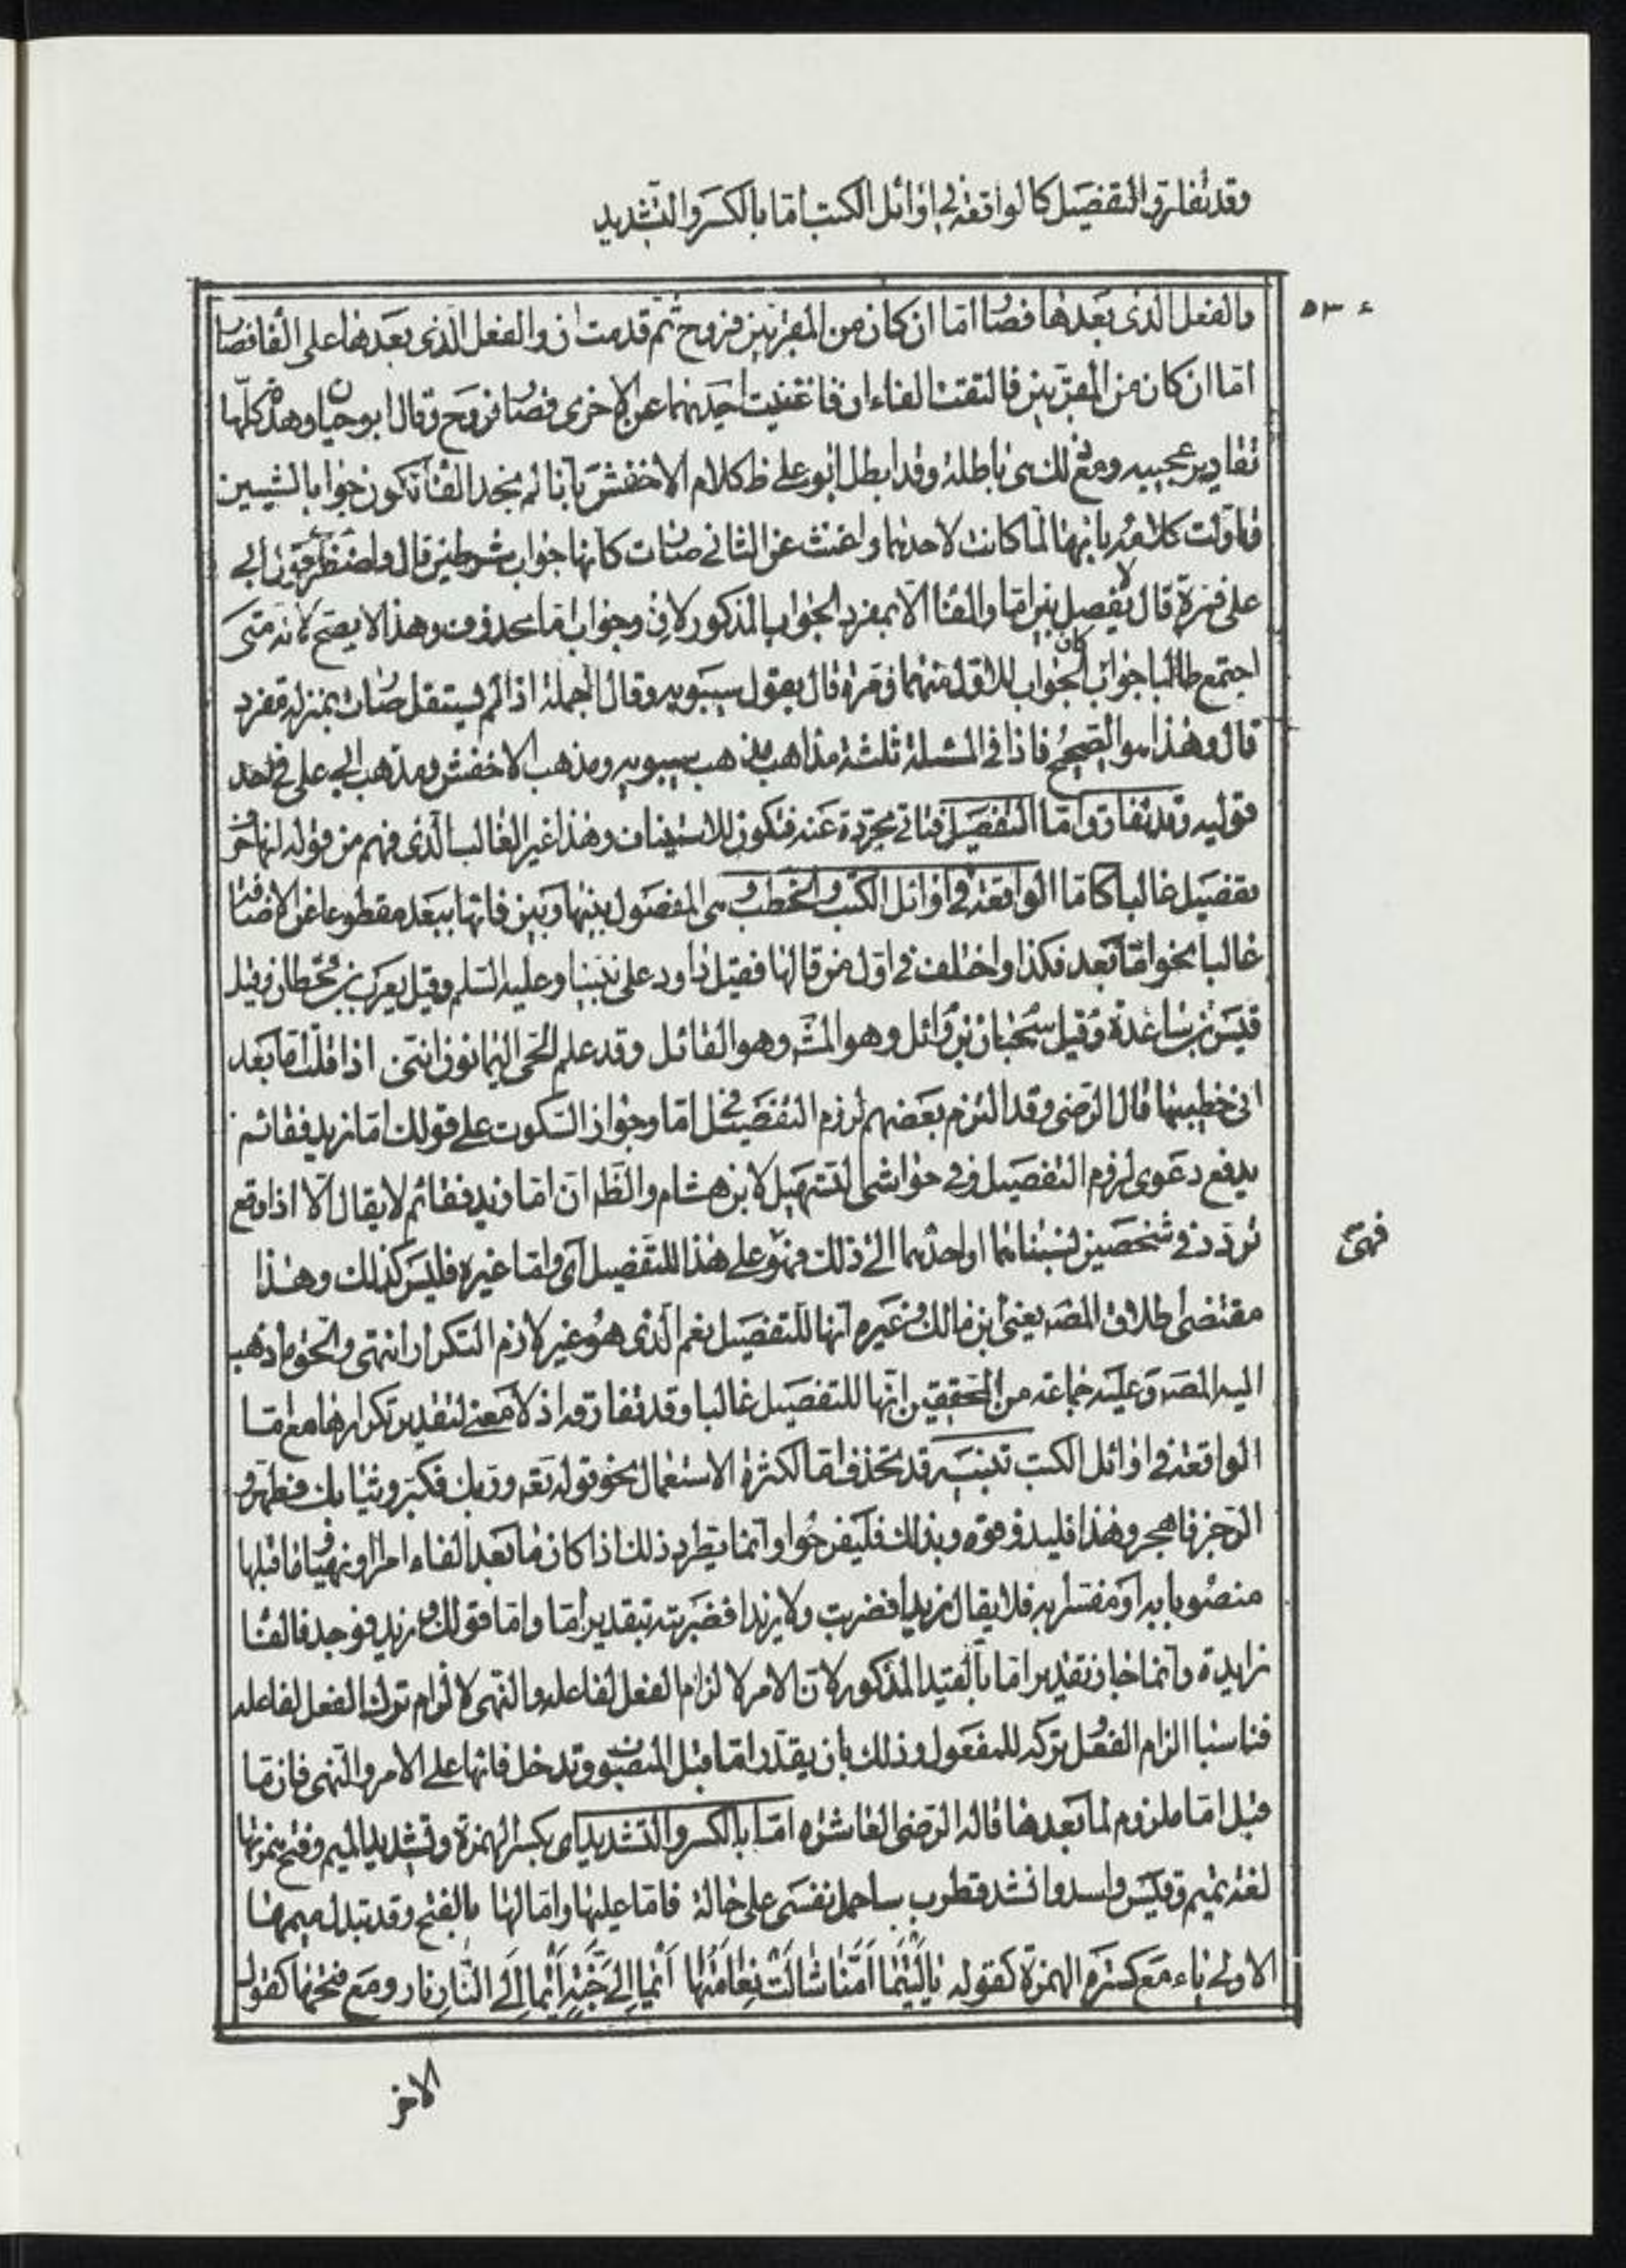 وقد تفارق التفصيل كالواقعة في اوائل الكتب امّا بالكسر والتشديد
٥٣٠
والفعل الذى بعدها فصار امّا ان كان من المقربين فروح ثم قدمت ان والفعل الّذى بعدها على الفا فصار
امّا ان كان من المقرّبين فالتقت الفاءان فاغنيت احديهما عن الاخرى فصار فروح وقال ابو حيان وهذه كلّها
تقادير عجيبه ومع ذلك هى باطلة وقد ابطل ابو على ظ كلام الاخفش بانا لم نجد الفا تكون جوابا لشيئين
وتأولت كلامه بانها لمّا كانت لاحدهما واغنت عن الثانى صارت كانها جواب شرطين قال واضطرب قول ابى
على فمرة قال لا يفصل بين امّا والفا الا بمفرد الجواب المذكور لان وجواب امّا محذوف وهذا لا يصح لانه متى
اجتمع طالبا جواب كان الجواب للاوّل منهما ومرة قال بقول سيبويه وقال الجملة اذا لم تستقل صارت بمنزلة مفرد
قال وهذا هو الصحيح فاذا فى المسئلة ثلثة مذاهب مذهب سيبويه ومذهب الاخفش ومذهب ابى على فى احد
قوليه وقد تفارق امّا التفصيل فتاتى مجرّدة عنه فتكون للاستيناف وهذا غير الغالب الّذى فهم من قوله انها حرف
تفصيل غالبا كامّا الواقعة فى اوائل الكتب والخطب وهى المفصول بينها وبين فائها ببعد مقطوعا عن الاضافة
غالبا نحو امّا بعد فكذا واختلف فى اول من قالها فقيل داود على نبينا وعليه السّلم وقيل يعرب بن قحطان وقيل
قيس بن ساعدة وقيل سحبان بن وائل وهو المشه وهو القائل وقد علم الحى اليمانون اننى اذا قلت امّا بعد
انى خطيبها قال الرّضى وقد التزم بعضهم لزوم التفصيل امّا وجواز السكوت على قولك امّا زيد فقائم
يدفع دعوى لزوم التفصيل وفى حواشى التسهيل لابن هشام والظه ان امّا زيد فقائم لا يقال الّا اذا وقع
تردّد فى شخصين نسبتاهما او احدهما الى ذلك فهو على هذا للتفصيل اى وامّا غيره فليس كذلك وهذا
مقتضى اطلاق المصه يعنى ابن مالك وغيره انها للتفصيل نعم الّذى هو غير لازم التكرار انتهى والحق ما ذهب
اليه المصه وعليه جماعة من المحققين انّها للتفصيل غالبا وقد تفارقه اذ لا معنى لتقدير تكرارها مع امّا
الواقعة فى اوائل الكتب تنبيه قد تحذف امّا لكثرة الاستعمال نحو قوله تعه وربك فكبر وثيابك فطهر و
الرجز فاهجر وهذا فليذوقوه وبذلك فليفرحوا وانما يطرد ذلك اذا كان ما بعد الفاء امرا او نهيا وما قبلها
منصوبا به او مفسّر به فلا يقال زيدا فضربت ولا زيدا فضربته بتقدير امّا وامّا قولك زيد فوجد فالفا
زايدة وانما جاز تقدير امّا بالقيد المذكور لان الامر لالزام الفعل لفاعله والنهى لالزام ترك الفعل لفاعله
فناسبا الزام الفعل او تركه للمفعول وذلك بان يقدّر امّا قبل المنصوب وتدخل فائها على الامر والنهى فان ما
قبل امّا ملزوم لما بعدها قاله الرّضى العاشره امّا بالكسر والتشديد اى بكسر الهمزة وتشديد الميم وفتح همزتها
لغة تميم وقيس واسد وانشد قطرب ساحمل نفسى على حالة فامّا عليها وامّا لها بالفتح وقد تبدل ميمها
الاولى ياء مع كسره الهمزة كقوله ياليتما امّنا شالت نعامتها ايما الى جنّة ايما الى النّار نار ومع فتحها كقول
الاخر